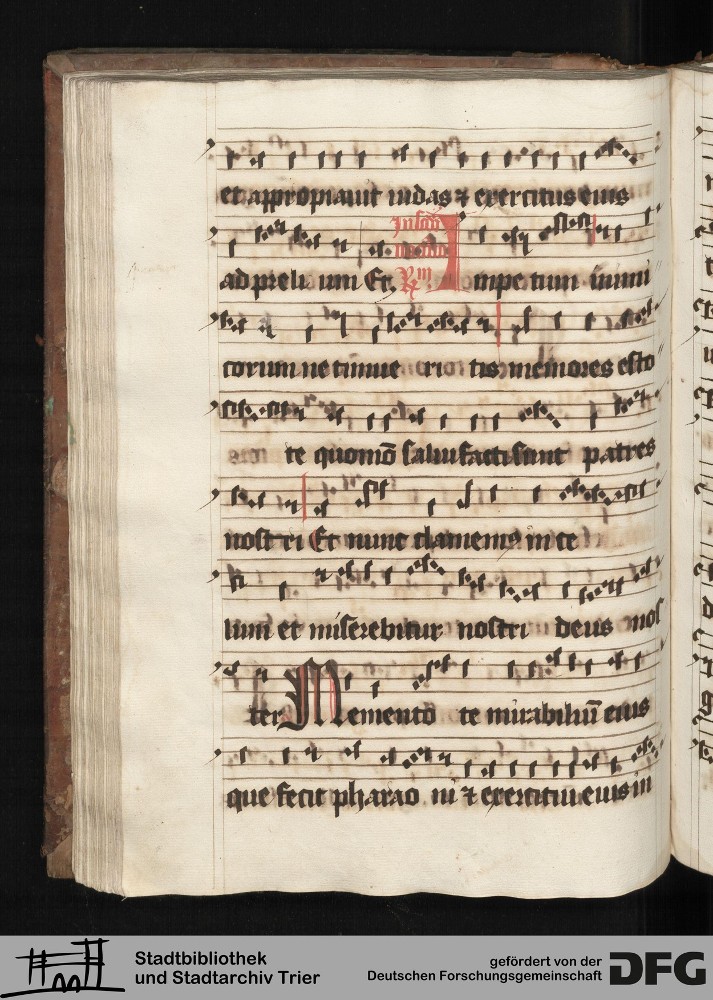 et appropiauit iudas ⁊ exercitus eius
ad preli um Et
Rm
Impetum inimi
corum ne timue ri tis memores esto
te quomō salui facti sunt patres
nostri Et nunc clamemus in ce
lum et miserebitur nostri deus nos
ter Memento te mirabiliū eius
que fecit pharao ni ⁊ exercitui eius in
Stadtbibliothek
und Stadtarchiv Trier
gefördert von der
Deutschen Forschungsgemeinschaft
DFG